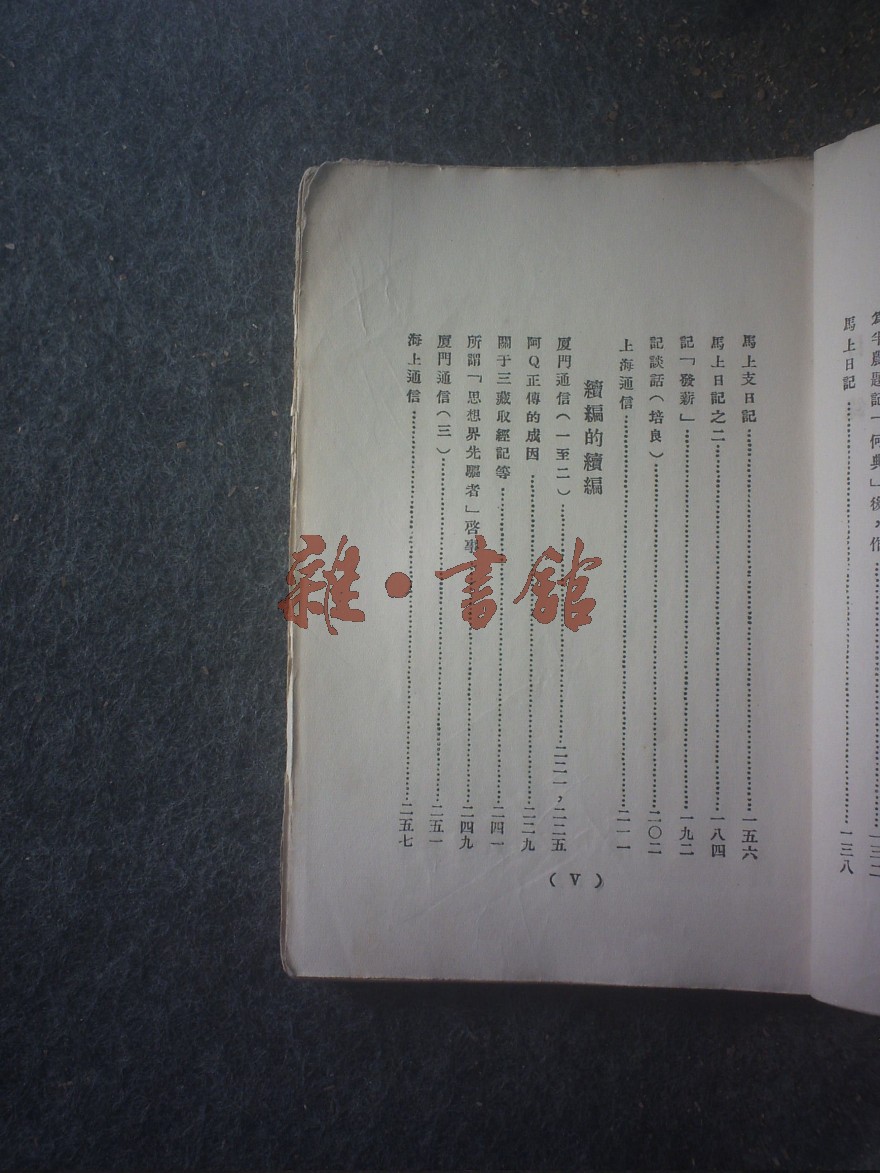 爲半農題記「何典」後,作……一三二
馬上日記……一三八
馬上支日記……一五六
馬上日記之二……一八四
記「發薪」……一九二
記談話(培良)……二〇二
上海通信……二一一
續編的續編
厦門通信(一至二)……二二一,二二五
阿Q正傳的成因……二二九
關于三藏取經記等……二四一
所謂「思想界先驅者」啓事……二四九
厦門通信(三)……二五一
海上通信……二五七
(V)
雜·書館